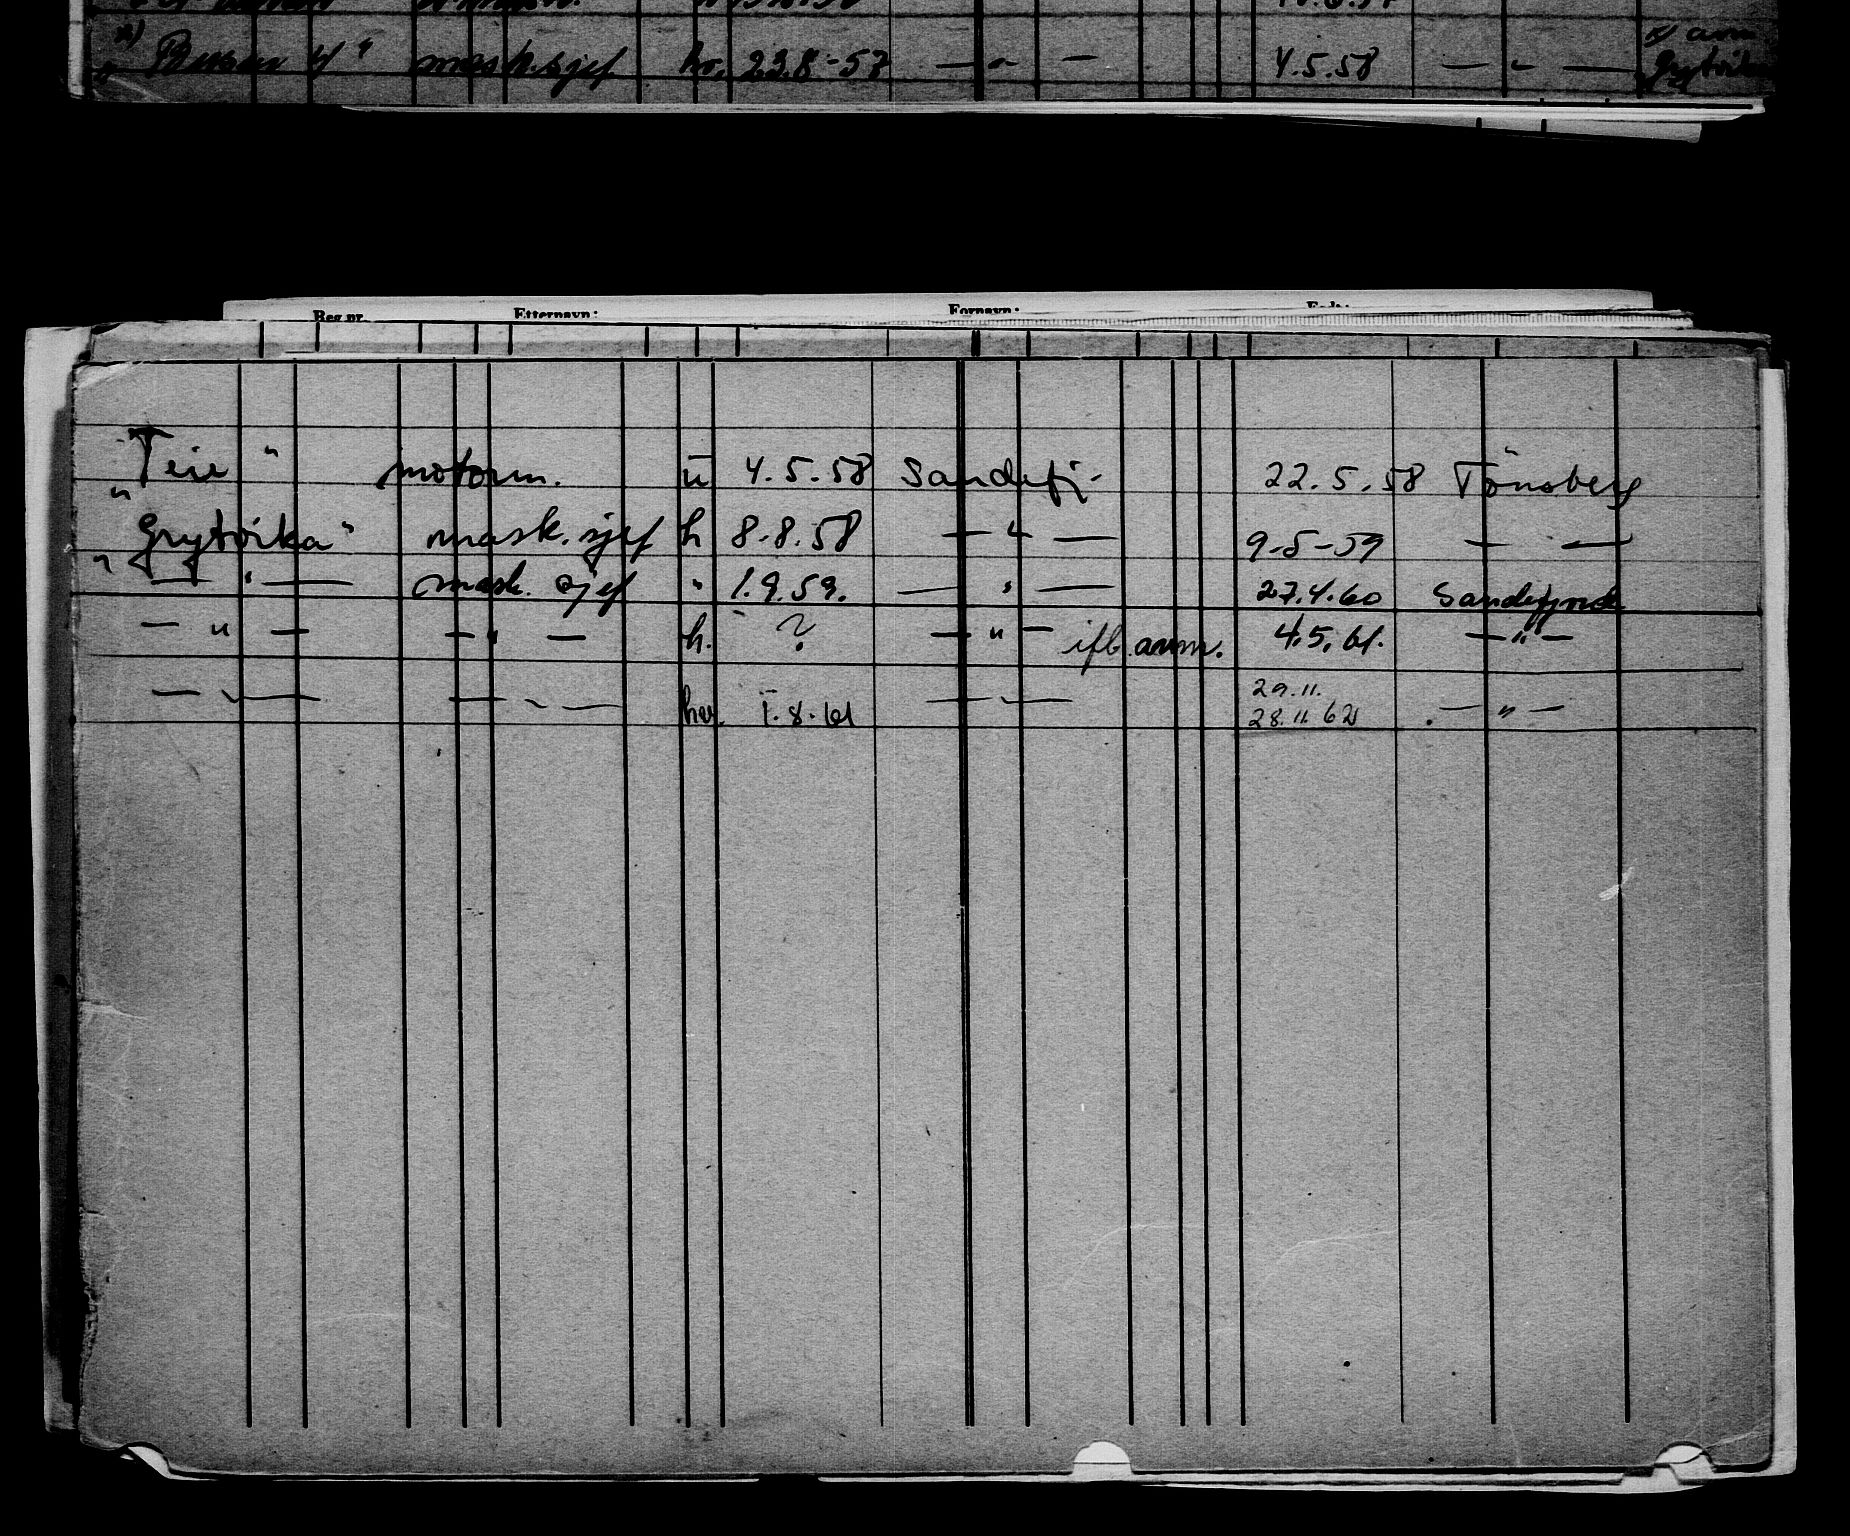 mask.sjef 23.8-57 — " — 4.5.58 — " —
x) anm
Grytvika
Reg.nr. Etternavn: Fornavn: Født:
"Teie" motorm. ü 4.5.58 Sandefj. 22.5.58 Tönsberg
"Grytvika" mask.sjef h 8.8.58 — " — 9-5-59 — —
" — " — mask. sjef " 1.9.59. — " — 27.4.60 Sandefjord
— " — — " — h. ? — " — ifl. anm. 4.5.61. — " —
— " — — " — hv. 1.8.61 — " — 29.11.
28.11.62 — " —